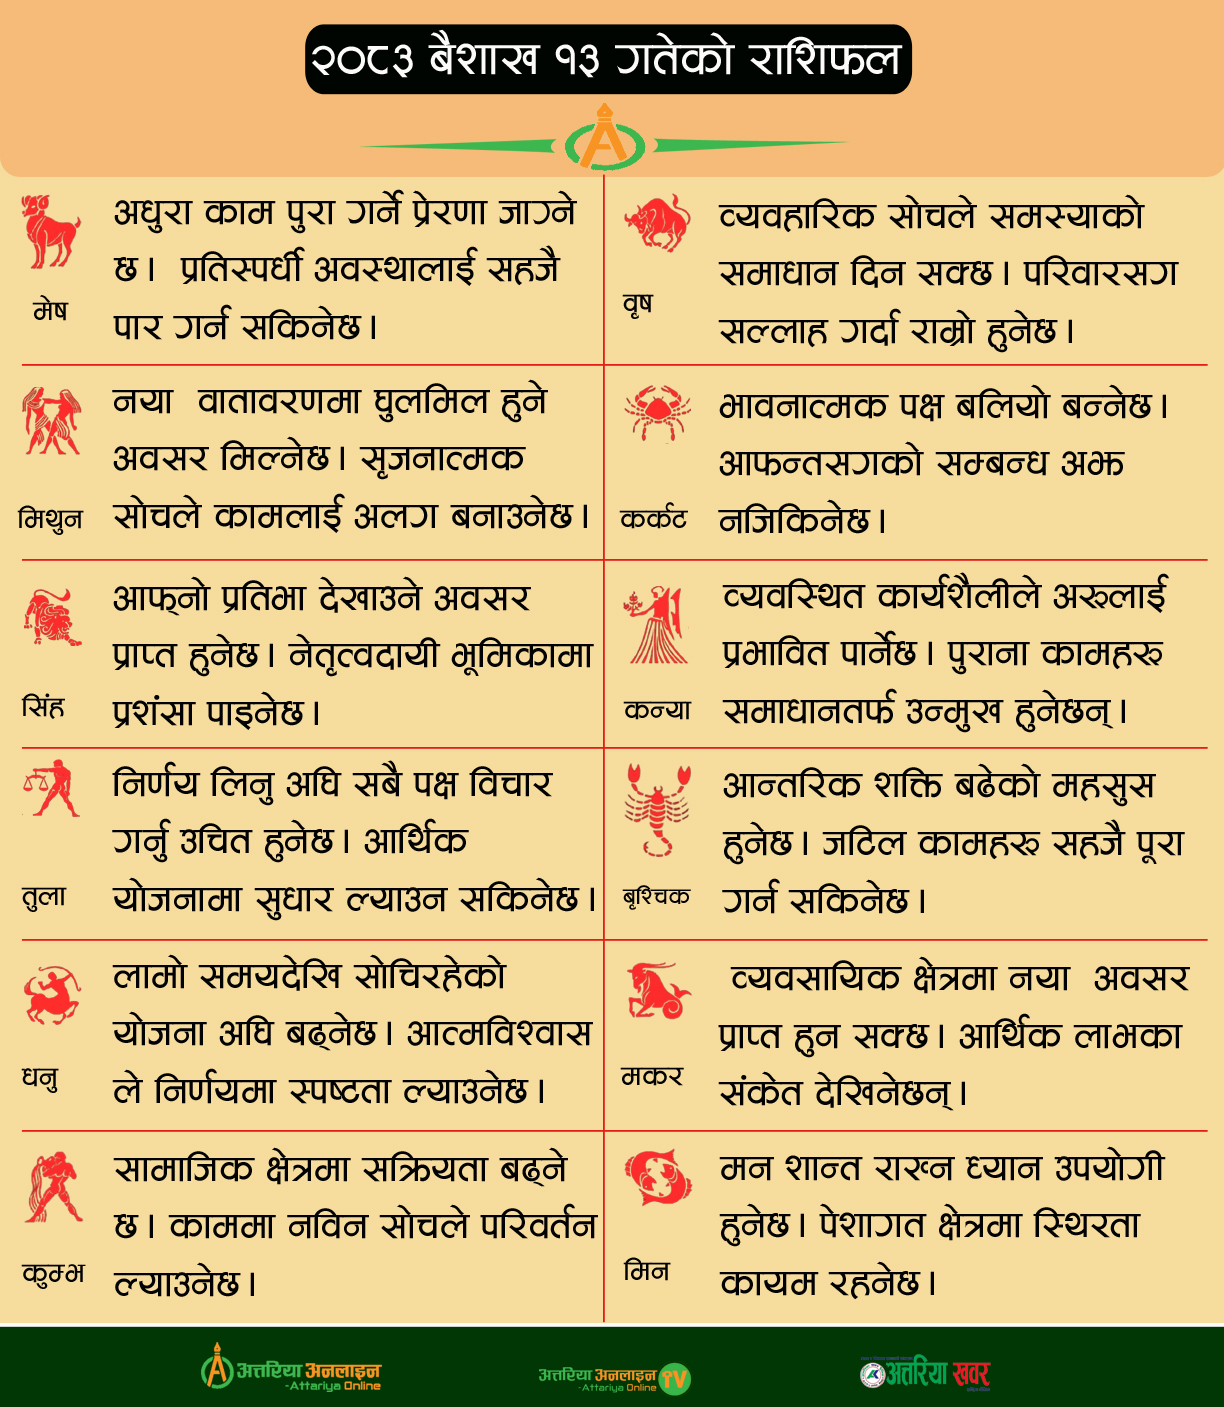 २०८३ बैशाख १३ गतेको राशिफल
अधुरा काम पुरा गर्ने प्रेरणा जाग्ने
छ। प्रतिस्पर्धी अवस्थालाई सहजै
पार गर्न सकिनेछ।
मेष
व्यवहारिक सोचले समस्याको
समाधान दिन सक्छ। परिवारसग
सल्लाह गर्दा राम्रो हुनेछ।
वृष
नया वातावरणमा घुलमिल हुने
अवसर मिल्नेछ। सृजनात्मक
सोचले कामलाई अलग बनाउनेछ।
मिथुन
भावनात्मक पक्ष बलियो बन्नेछ।
आफन्तसगको सम्बन्ध अझ
नजिकिनेछ।
कर्कट
आफ्नो प्रतिभा देखाउने अवसर
प्राप्त हुनेछ। नेतृत्वदायी भूमिकामा
प्रशंसा पाइनेछ।
सिंह
व्यवस्थित कार्यशैलीले अरुलाई
प्रभावित पार्नेछ। पुराना कामहरु
समाधानतर्फ उन्मुख हुनेछन्।
कन्या
निर्णय लिनु अघि सबै पक्ष विचार
गर्नु उचित हुनेछ। आर्थिक
योजनामा सुधार ल्याउन सकिनेछ।
तुला
आन्तरिक शक्ति बढेको महसुस
हुनेछ। जटिल कामहरु सहजै पूरा
गर्न सकिनेछ।
बृश्चिक
लामो समयदेखि सोचिरहेको
योजना अघि बढ्नेछ। आत्मविश्वास
ले निर्णयमा स्पष्टता ल्याउनेछ।
धनु
व्यवसायिक क्षेत्रमा नया अवसर
प्राप्त हुन सक्छ। आर्थिक लाभका
संकेत देखिनेछन्।
मकर
सामाजिक क्षेत्रमा सक्रियता बढ्ने
छ। काममा नविन सोचले परिवर्तन
ल्याउनेछ।
कुम्भ
मन शान्त राख्न ध्यान उपयोगी
हुनेछ। पेशागत क्षेत्रमा स्थिरता
कायम रहनेछ।
मिन
अत्तरिया अनलाइन
-Attariya Online
अत्तरिया अनलाइन TV
-Attariya Online
अत्तरिया खवर